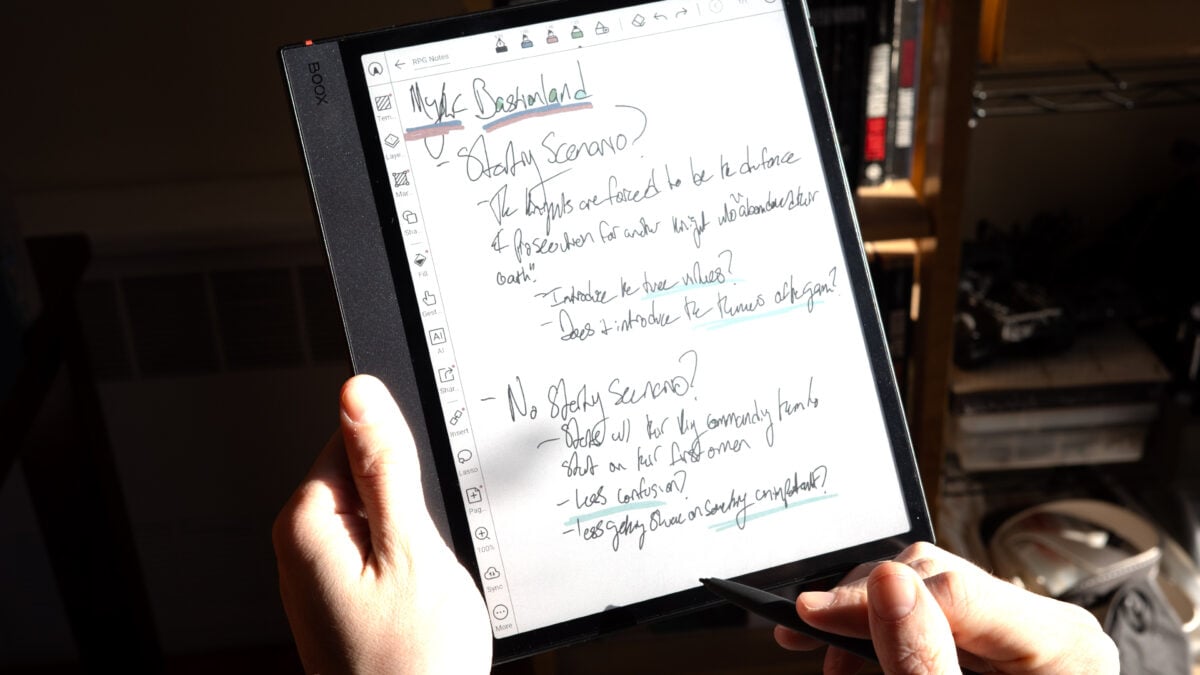 BOOX
RPG Notes
Mythic Bastionland
- Starting Scenario?
- The Knights are forced to be the defence
& prosecution for another Knight who "abandoned their
oath."
- Introduce the three virtues?
- Does it introduce the themes of the game?
- No Starting Scenario?
- Starts w/ their King commanding them to
start on their first omen
- Less confusion?
- less getting stuck on something unimportant?
Tem...
Laye...
Mar...
Sha...
Fill
Gest...
AI
AI
Shar...
Insert
Lasso
Pag...
100%
Sync
More